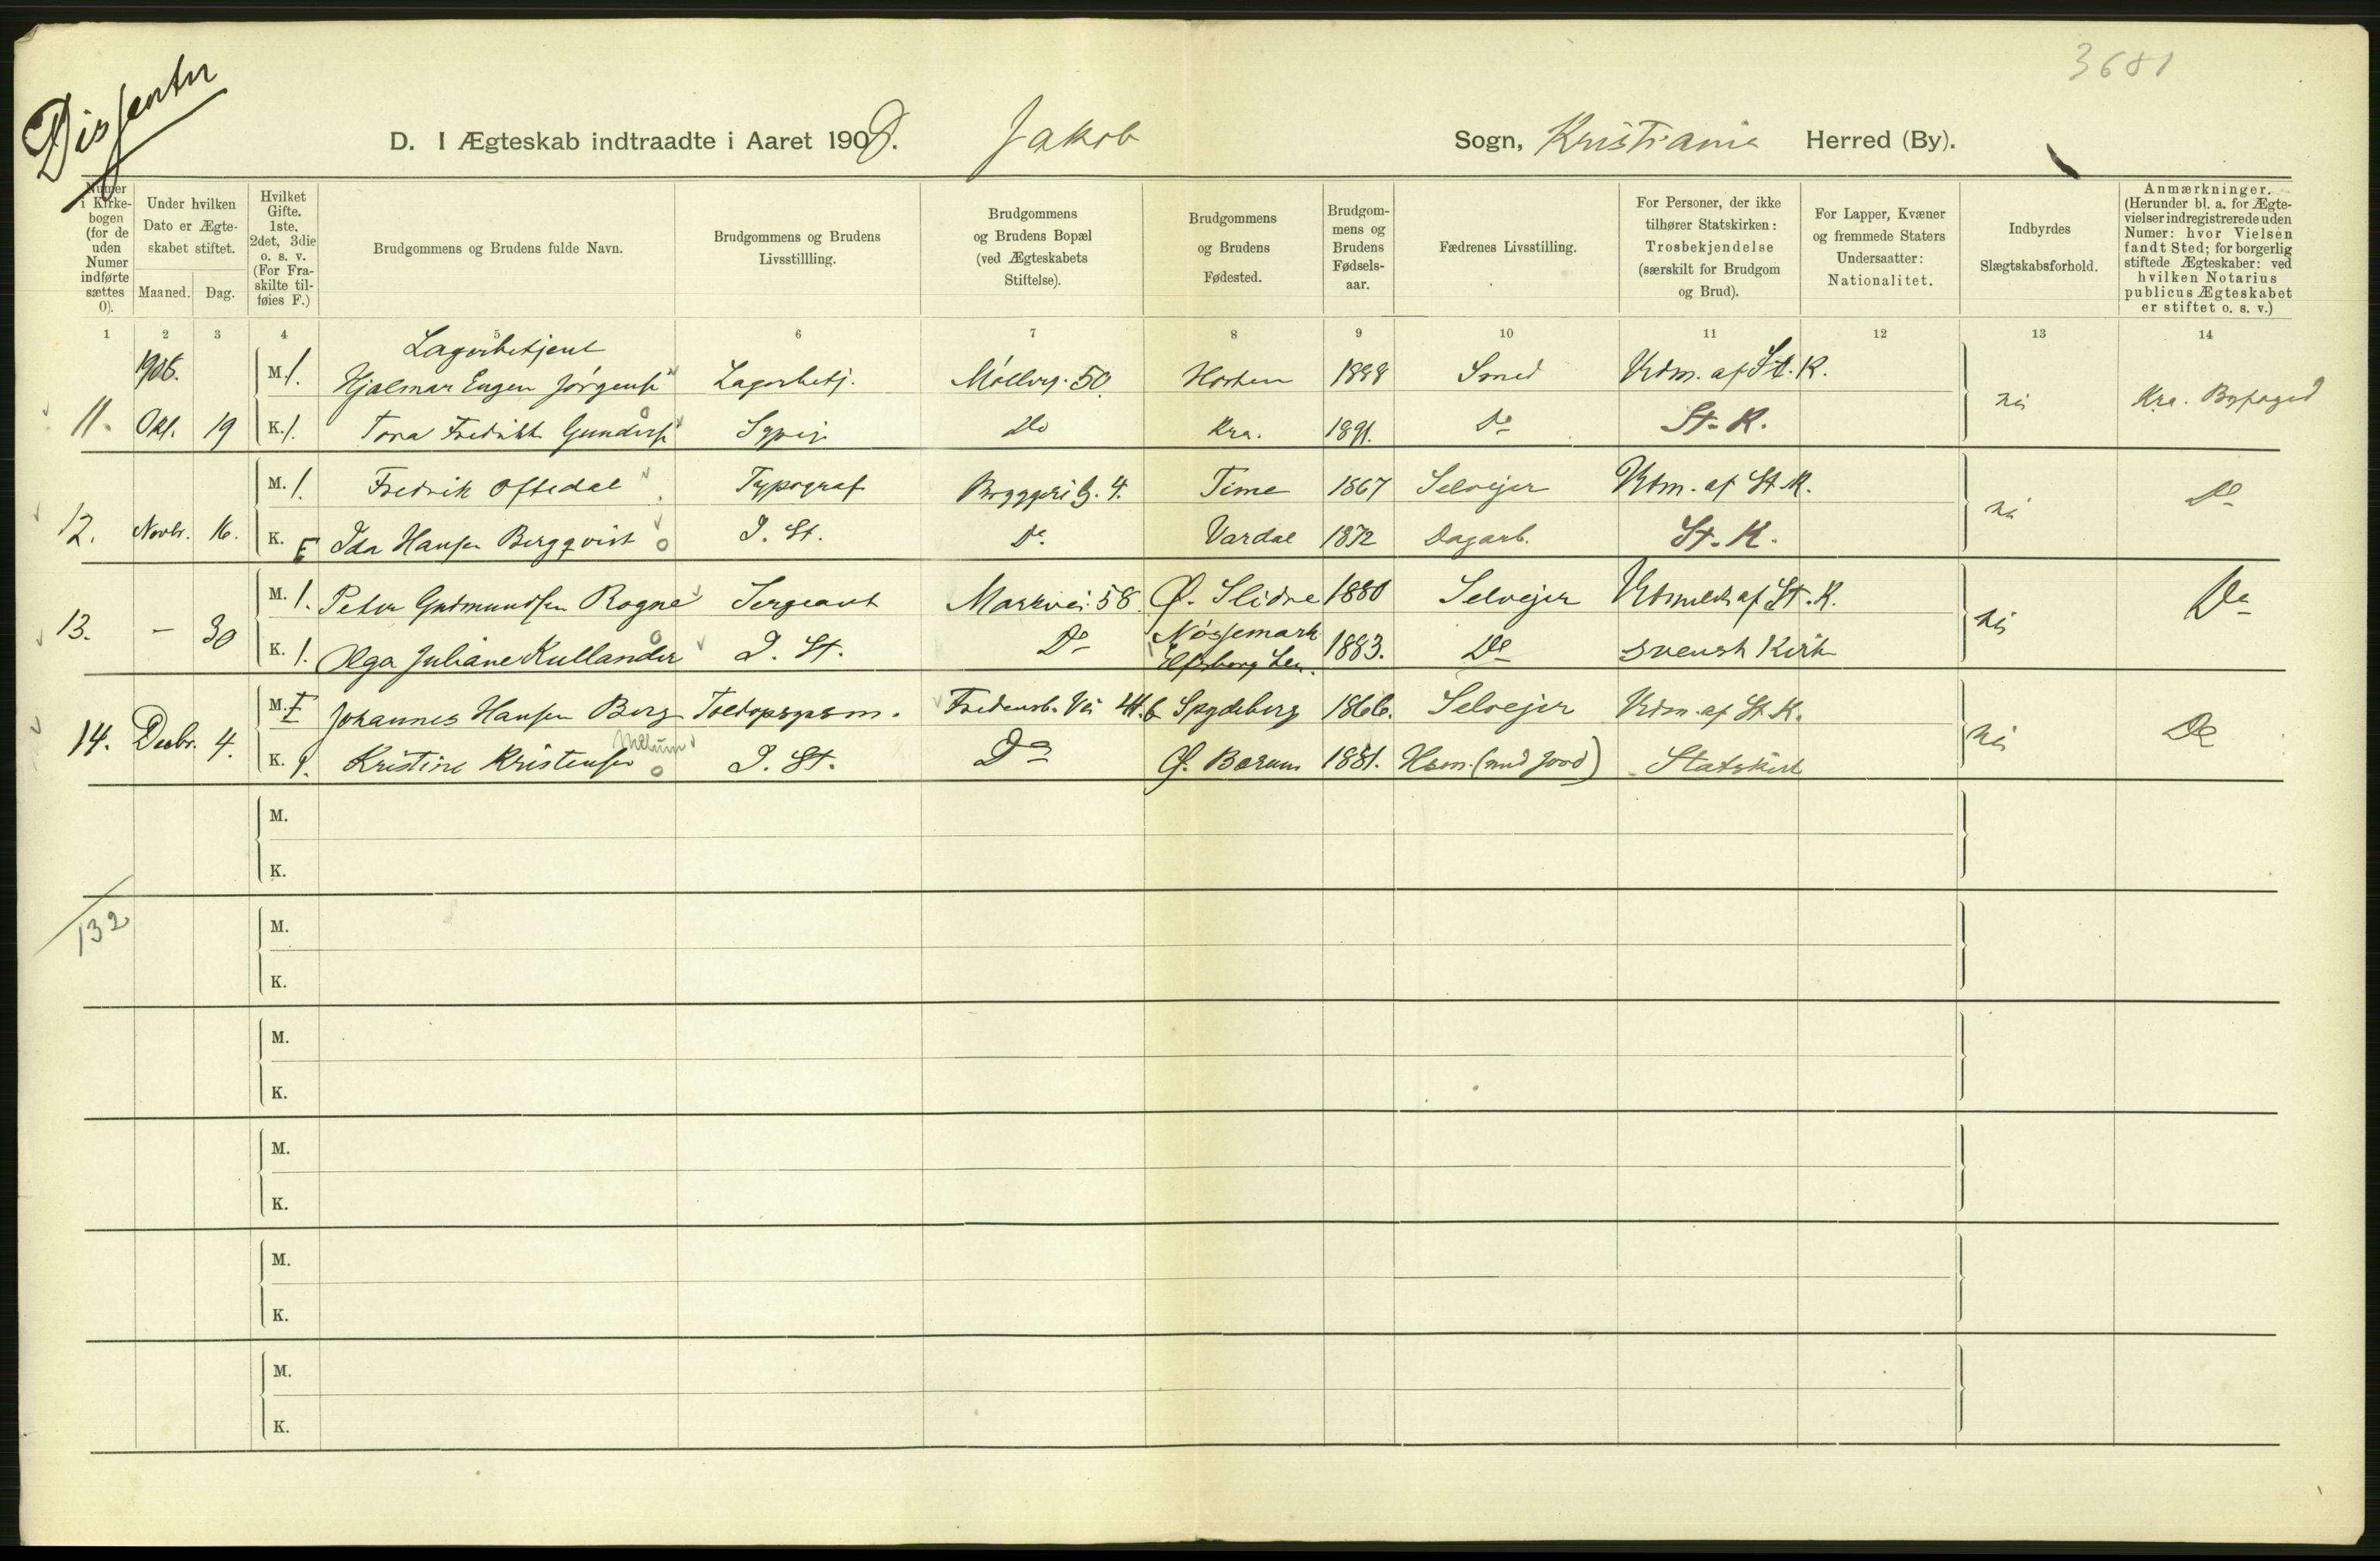 3681
Dissenter
D. I Ægteskab indtraadte i Aaret 1908. Jakob Sogn, Kristiania Herred (By).
Numer i Kirkebogen (for de uden Numer indførte sættes 0).
Under hvilken Dato er Ægteskabet stiftet.
Maaned. Dag.
Hvilket Gifte. 1ste. 2det, 3die o. s. v. (For Fraskilte tilføies F.)
Brudgommens og Brudens fulde Navn.
Brudgommens og Brudens Livsstillling.
Brudgommens og Brudens Bopæl (ved Ægteskabets Stiftelse).
Brudgommens og Brudens Fødested.
Brudgommens og Brudens Fødselsaar.
Fædrenes Livsstilling.
For Personer, der ikke tilhører Statskirken: Trosbekjendelse (særskilt for Brudgom og Brud).
For Lapper, Kvæner og fremmede Staters Undersaatter: Nationalitet.
Indbyrdes Slægtskabsforhold.
Anmærkninger. (Herunder bl. a. for Ægtevielser indregistrerede uden Numer: hvor Vielsen fandt Sted; for borgerlig stiftede Ægteskaber: ved hvilken Notarius publicus Ægteskabet er stiftet o. s. v.)
1 2 3 4 5 6 7 8 9 10 11 12 13 14
Lagerbetjent
1908. M. 1. Hjalmar Eugen Jørgens. Lagerbetj. Møllerg. 50. Horten 1888 Smed Udm. af St. K.
11. Okt. 19 K. 1. Tora Fredrikke Gunders. Sypig. Do Kra. 1891. Do St. K. nei Kra. Byfoged
M. 1. Fredrik Oftedal Typograf Bryggerig. 4. Time 1867 Selvejer Udm. af St. K.
12. Novbr. 16. K. F Ida Hansen Bergqvist I. St. Do Vardal 1872 Dagarb. St. K. nei Do
M. 1. Peter Gudmundsen Rogne Sergeant Markvei. 58 Ø. Slidre 1880 Selvejer Udmeldt af St. K.
13. – 30 K. 1. Olga Juliane Kullander I. St. Do Nössemark Elfsborg Len. 1883. Do svensk Kirke nei Do
M. F Johannes Hansen Berg Toldopsynsm. Fredensb. Vei 44.b Spydeberg 1866. Selvejer Udm. af St. K.
14. Decbr. 4. K. 1. Kristine Kristensen I. St. Do Ø. Bærum 1881. Hsm. (med Jord) Statskirk nei Do
M.
K.
132
M.
K.
M.
K.
M.
K.
M.
K.
M.
K.